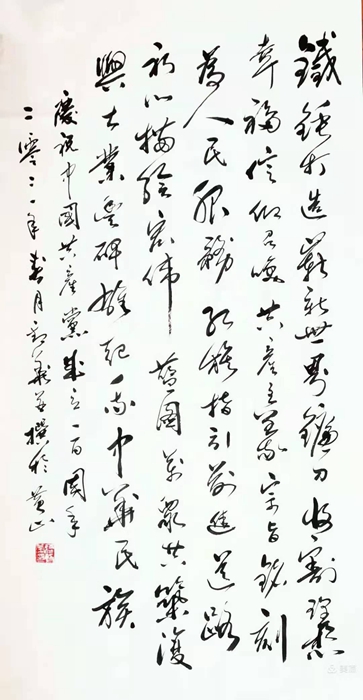 鐵錘打造嶄新世界鐮刀收割
幸福信仰召喚共産主義宗旨銘刻
為人民服務紅旗指引前進道路
初心描繪宏偉藍圖萬眾共築復
興大業豐碑雄起中華民族
慶祝中國共産黨成立一百周年
二零二一年春月